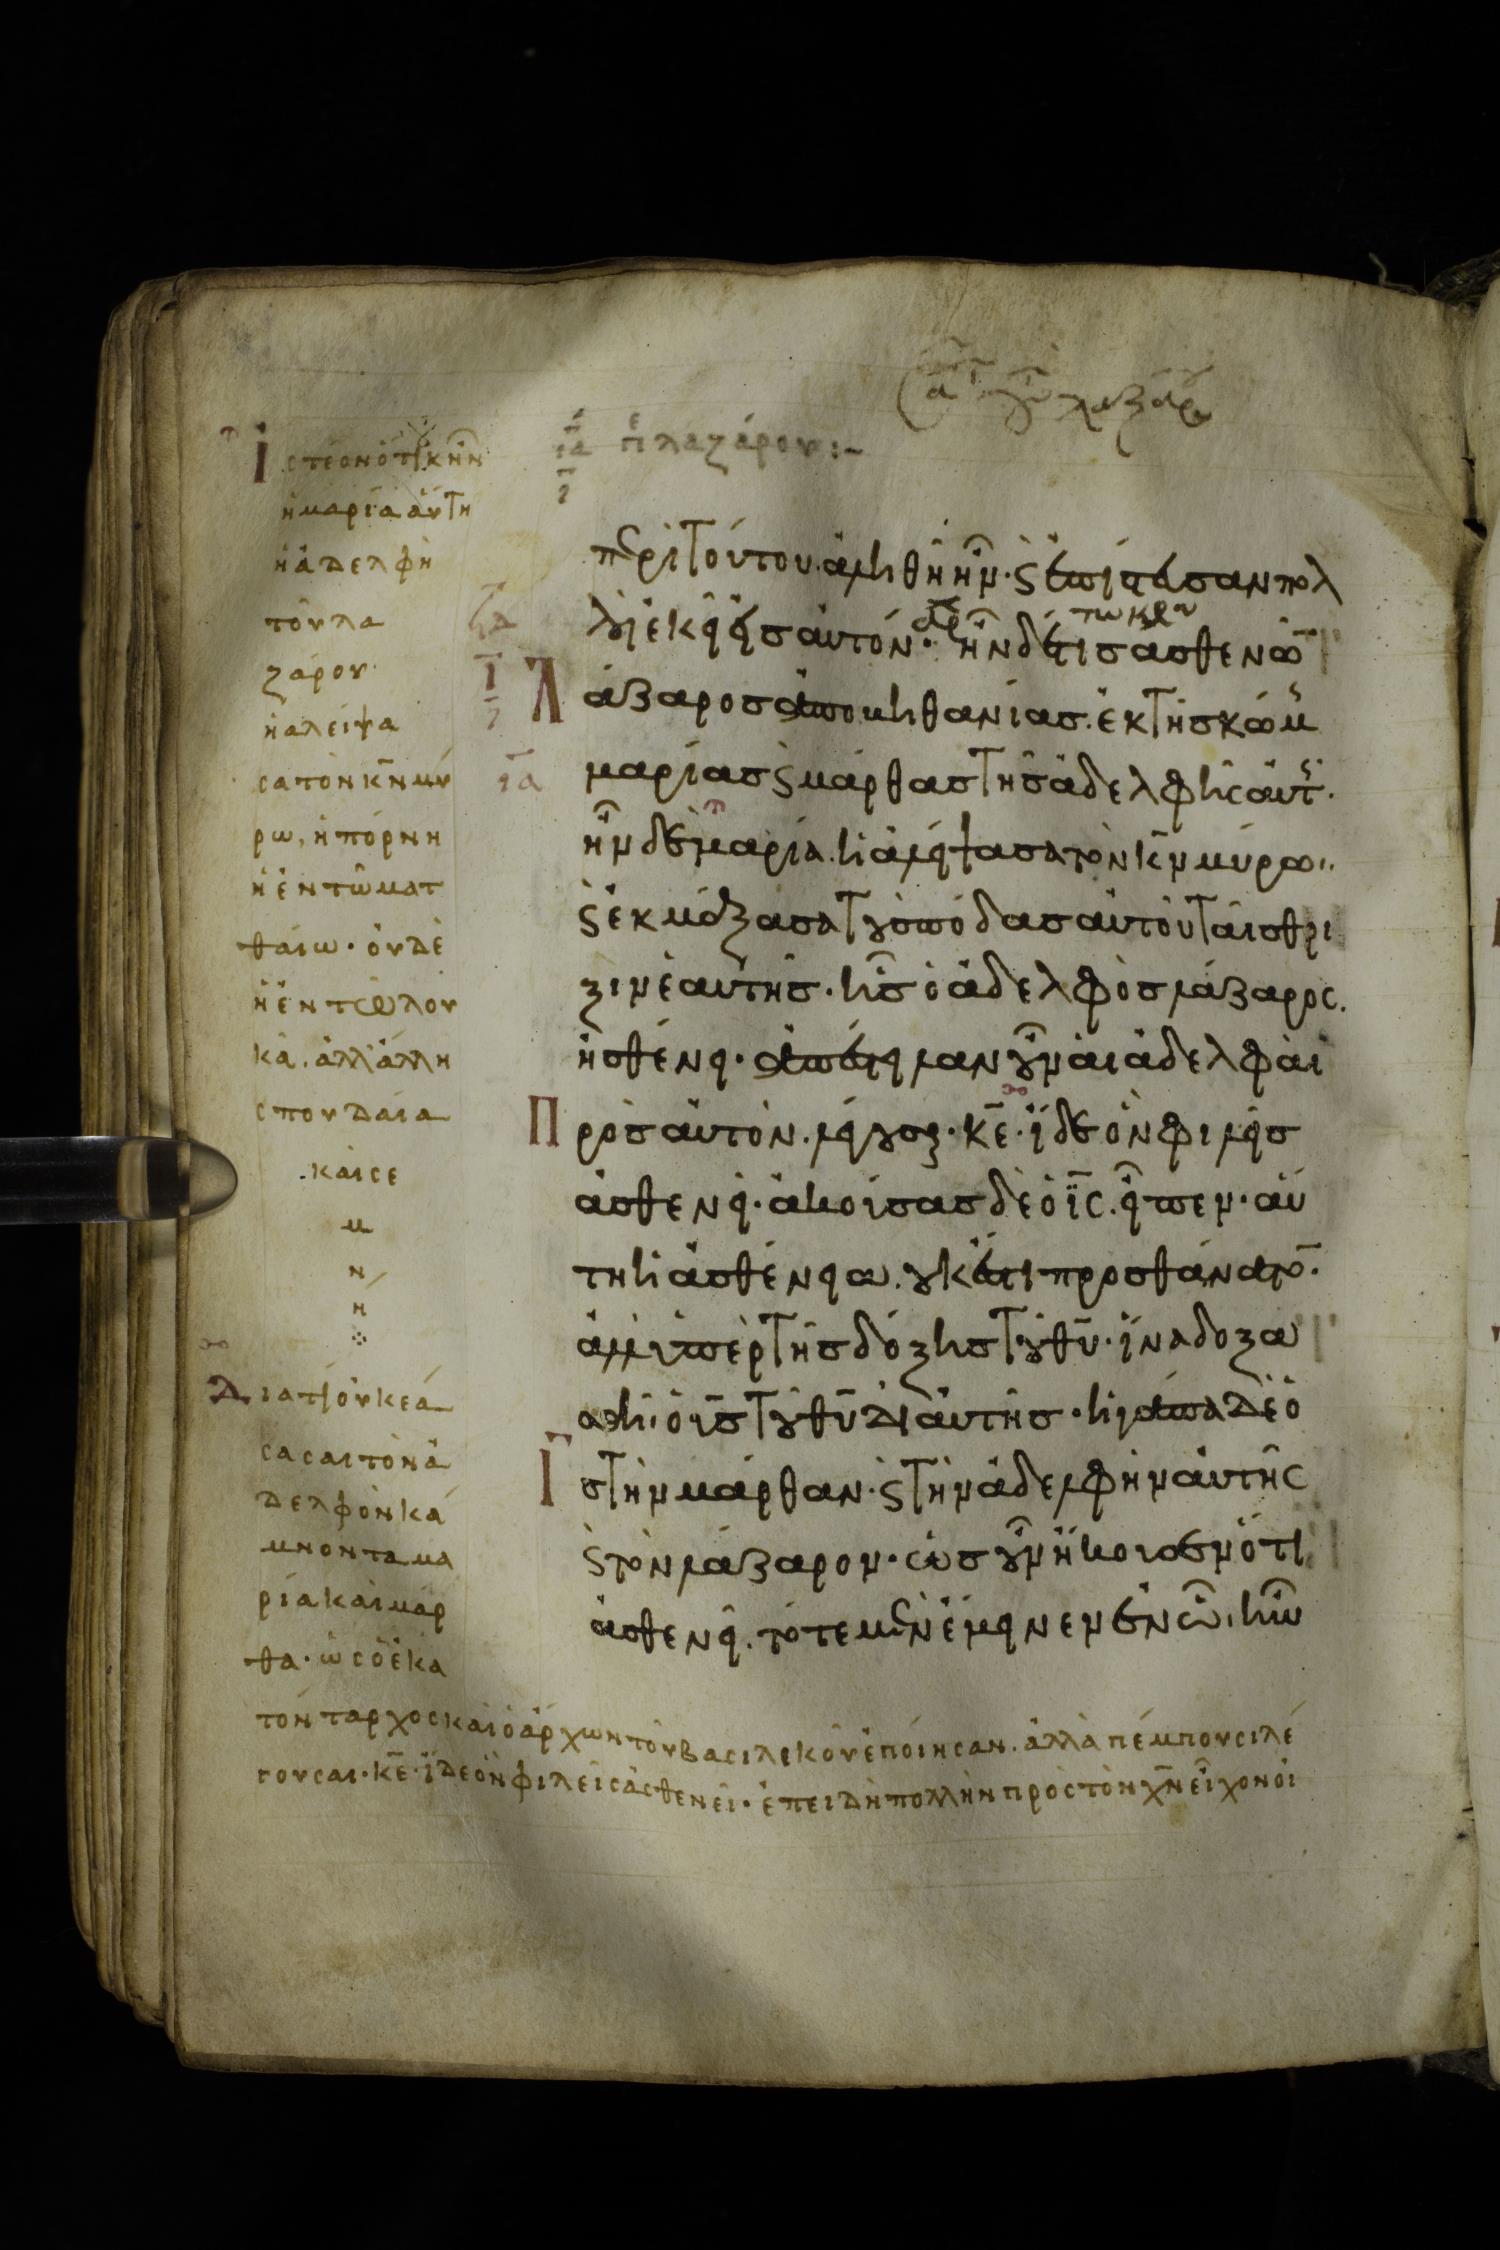 ια πε λαζάρου:-
περὶ τούτου. ἀληθῆ ἦν· καὶ ἐπίστευσαν πολ
λοὶ ἐκεῖ εἰς αὐτόν· ἦν δέ τις ἀσθενῶ̅
τω καιρῶ
Λάζαρος ἀπὸ βηθανίας. ἐκ τῆς κώμ
μαρίας καὶ μάρθας τῆς ἀδελφῆς αὐτ·
ἦν δὲ μαρία. ἡ ἀλείψασα τὸν κ̅ν μύρω..
καὶ ἐκμάξασα τοὺς πόδας αὐτοῦ ταῖς θρι
ξὶν ἑαυτῆς· ἧς ὁ ἀδελφὸς λάζαρος.
ἠσθένει· ἀπέστειλαν οὖν αἱ ἀδελφαὶ
Πρὸς αὐτὸν. λέγουσαι· κ̅ε· ἴδε ὃν φιλεῖς
ἀσθενεῖ· ἀκούσας δὲ ὁ ι̅ς. εἶπεν· αὕ
τη ἡ ἀσθένεια. οὐκ ἔστι προς θάνατο̅·
ἀλλ' ὑπὲρ τῆς δόξης τοῦ θ̅υ· ἵνα δοξα
σθῆ ὁ υ̅ς τοῦ θ̅υ δι' αὐτῆς· ἠγάπα δὲ ὁ
Ι̅ς τὴν μάρθαν· καὶ τὴν ἀδελφὴν αὐτῆς
καὶ τὸν λάζαρον· ὡς οὖν ἤκουσεν ὅτι
ἀσθενεῖ. τότε μὲν ἔμεινεν ἐν ὧ. ἦν
Ἰστέον ὅτι οὐκ ἦν
ἡ μαρία αὕτη
ἡ ἀδελφὴ
τοῦ λα
ζάρου
ἡ ἀλείψα
σα τὸν κ̅ν μύ
ρω, ἡ πόρνη
ἡ ἐν τῶ ματ
θαίω· οὐδὲ
ἡ ἐν τῶ λου
κᾶ. ἀλλ' ἄλλη
σπουδαία
καὶ σε
μ
ν
ὴ
Διατί οὐκ εἀ
σασαι τὸν ἀ
δελφὸν κά
μνοντα μα
ρία καὶ μάρ
θα· ὡς ὁ ἑκα
τόνταρχος καὶ ὁ ἄρχων τοῦ βασιλεικοῦ ἐποίησαν. ἀλλὰ πέμπουσι λέ
γουσαι· κ̅ε· ἴδε ὃν φιλεῖς ἀσθενεῖ· ἐπειδὴ πολλὴν πρὸς τὸν χ̅ν εἶχον οἱ